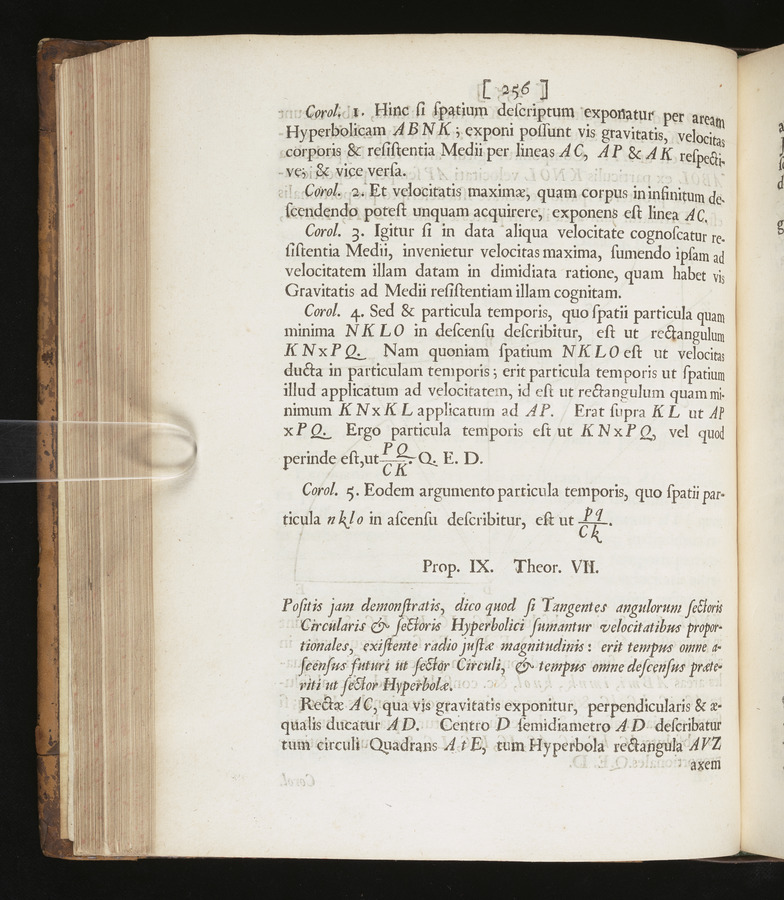 [ 256 ]
Corol. 1. Hinc ſi ſpatium deſcriptum exponatur per aream
Hyperbolicam ABNK; exponi poſſunt vis gravitatis, velocitas
corporis & reſiſtentia Medii per lineas AC, AP & AK reſpecti-
ve; & vice verſa.
Corol. 2. Et velocitatis maximæ, quam corpus in infinitum de-
ſcendendo poteſt unquam acquirere, exponens eſt linea AC.
Corol. 3. Igitur ſi in data aliqua velocitate cognoſcatur re-
ſiſtentia Medii, invenietur velocitas maxima, ſumendo ipſam ad
velocitatem illam datam in dimidiata ratione, quam habet vis
Gravitatis ad Medii reſiſtentiam illam cognitam.
Corol. 4. Sed & particula temporis, quo ſpatii particula quam
minima NKLO in deſcenſu deſcribitur, eſt ut rectangulum
KNxPQ. Nam quoniam ſpatium NKLO eſt ut velocitas
ducta in particulam temporis; erit particula temporis ut ſpatium
illud applicatum ad velocitatem, id eſt ut rectangulum quam mi-
nimum KNxKL applicatum ad AP. Erat ſupra KL ut AP
xPQ. Ergo particula temporis eſt ut KNxPQ, vel quod
perinde eſt, ut PQ/CK. Q. E. D.
Corol. 5. Eodem argumento particula temporis, quo ſpatii par-
ticula nklo in aſcenſu deſcribitur, eſt ut pq/Ck.
Prop. IX. Theor. VII.
Poſitis jam demonſtratis, dico quod ſi Tangentes angulorum ſectoris
Circularis & ſectoris Hyperbolici ſumantur velocitatibus propor-
tionales, exiſtente radio juſtæ magnitudinis: erit tempus omne a-
ſcenſus futuri ut ſector Circuli, & tempus omne deſcenſus præte-
riti ut ſector Hyperbolæ.
Rectæ AC, qua vis gravitatis exponitur, perpendicularis & æ-
qualis ducatur AD. Centro D ſemidiametro AD deſcribatur
tum circuli Quadrans AtE, tum Hyperbola rectangula AVZ
axem